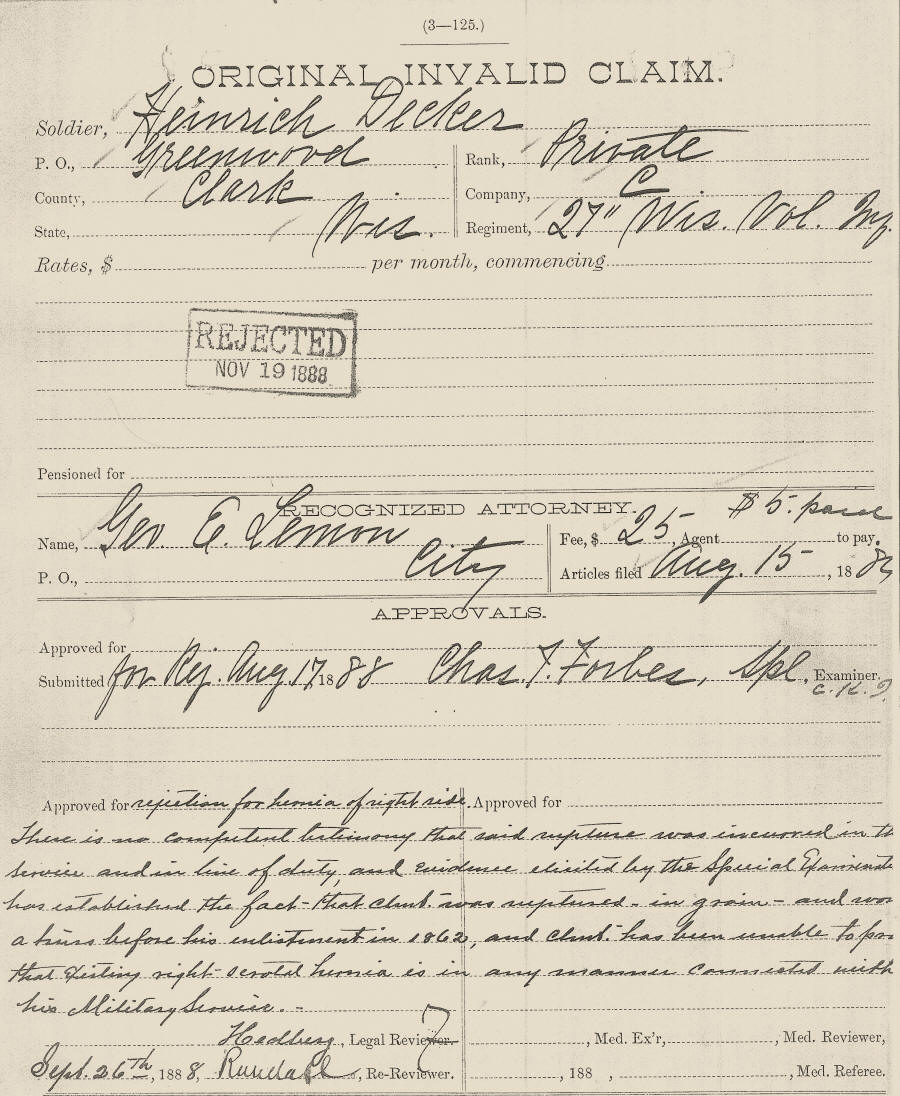 (3—125.)
ORIGINAL INVALID CLAIM.
Soldier, Heinrich Decker
P. O., Greenwood
Rank, Private
County, Clark
Company, C
State, Wis.
Regiment, 27" Wis. Vol. Inf.
Rates, $ per month, commencing
REJECTED
NOV 19 1888
Pensioned for
RECOGNIZED ATTORNEY.
Name, Geo. E. Lemon
Fee, $ 25, Agent $5. paid to pay.
P. O., City
Articles filed Aug. 15, 18
APPROVALS.
Approved for
Submitted for Rej. Aug. 17, 1888 Chas. F. Forbes, Spl. Examiner.
Approved for rejection for hernia of right side. Approved for
There is no competent testimony that said rupture was incurred in th
service and in line of duty, and evidence elicited by the Special
has established the fact - that clmt. was ruptured - in groin - and wor
a truss before his enlistment in 1862, and clmt. has been unable to pro
that existing right scrotal hernia is in any manner connected with
his Military Service. -
Hedberg, Legal Reviewer. , Med. Ex'r, , Med. Reviewer,
Sept. 26th, 1888, , Re-Reviewer. , 188 , , Med. Referee.